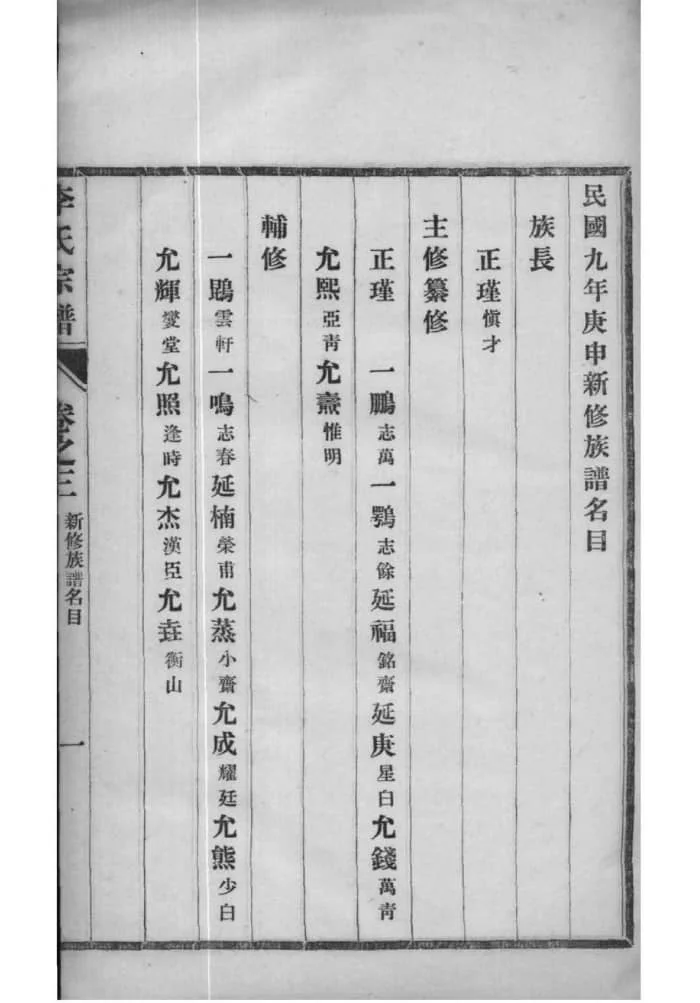 民國九年庚申新修族譜名目
族長
正瑾慎才
主修纂修
正瑾 一鵬志萬一鶚志餘延福銘齋延庚星白允錢萬青
允熙亞青允燾惟明
輔修
一鵾雲軒一鳴志春延楠榮甫允蒸小齋允成耀廷允熊少白
允輝燮堂允照逢時允杰漢亞允垚衡山
李氏宗譜 卷之三 新修族譜名目 一